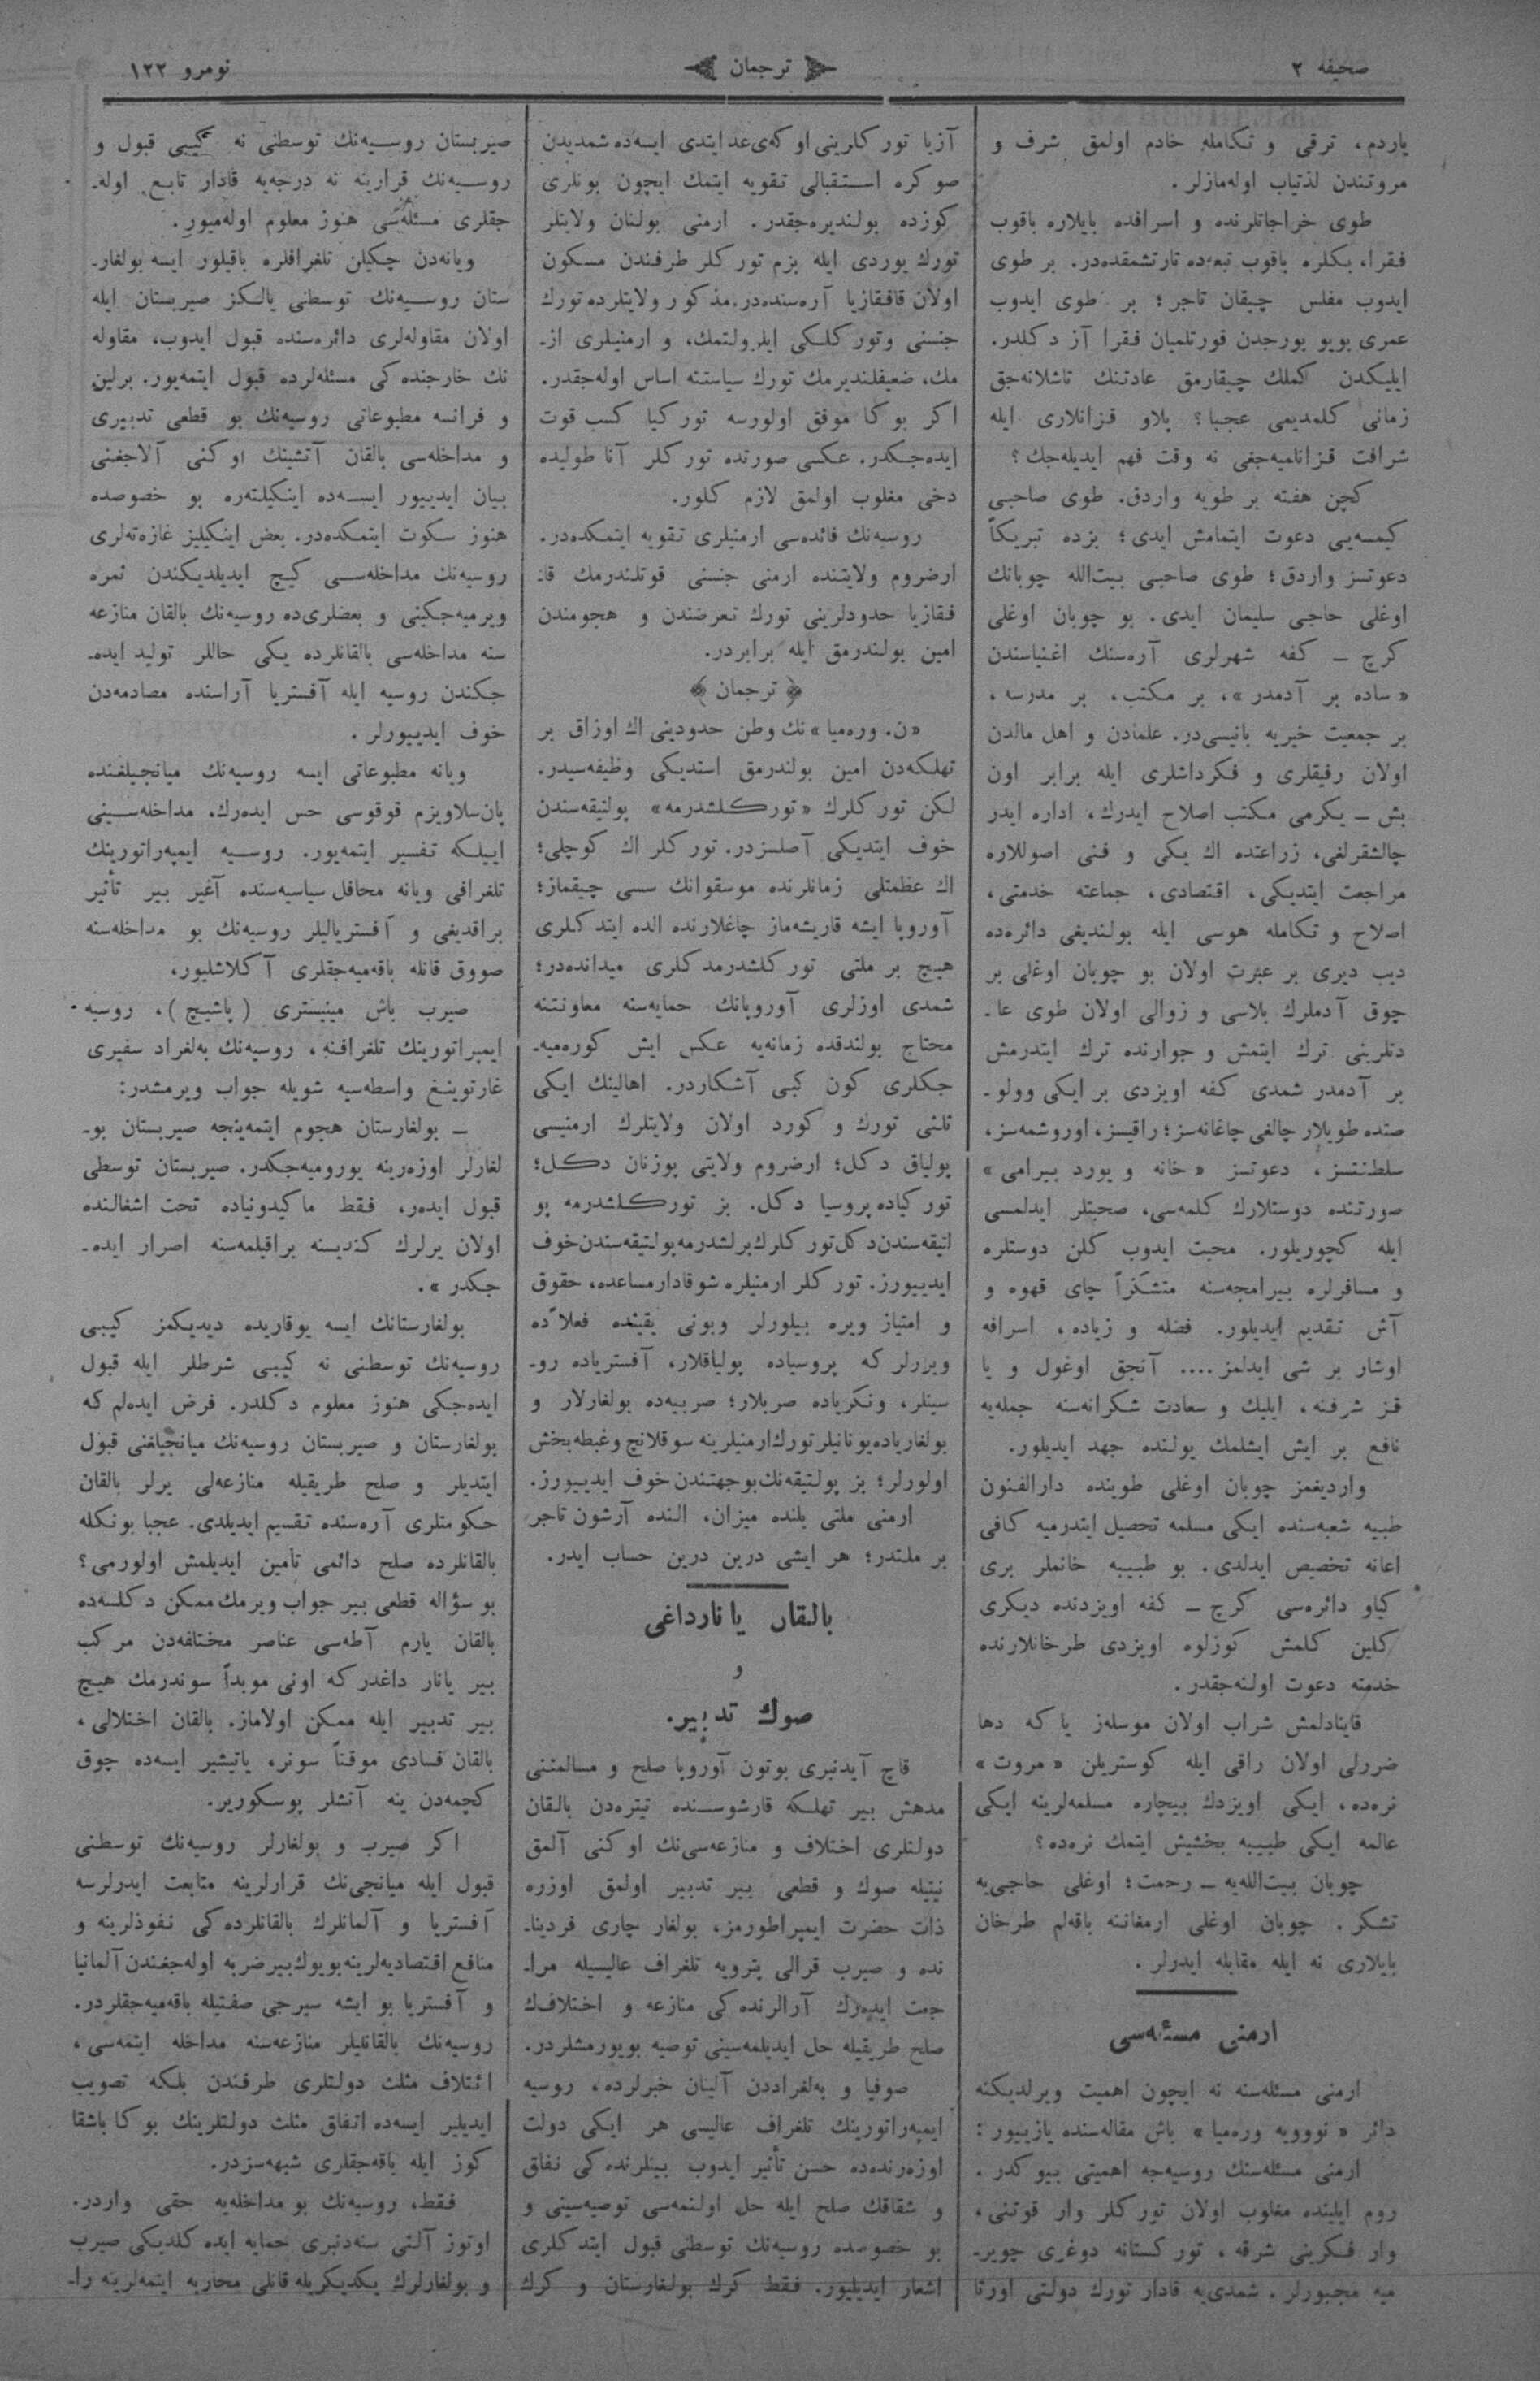 صحیفه ٢
ترجمان
نومرو ١٢٢
یاردم، ترقی و تكامله خادم اولمق شرف و
مروتندن لذتیاب اوله‌مازلر.
طوی خراجاتلرنده و اسرافده بایلاره باقوب
فقرا، بكلره باقوب تبعه‌ده تارتشمقده‌در. بر طوی
ایدوب مفلس چیقان تاجر؛ بر طوی ایدوب
عمری بویو بورجدن قورتلمیان فقرا آز دكلدر.
ایلیكدن كملك چیقارمق عادتنك تاشلانه‌جق
زمانی كلمدیمی عجبا؟ پلاو قزانلاری ایله
شرافت قزانلمیه‌جغی نه وقت فهم ایدیله‌جك؟
كچن هفته بر طویه واردق. طوی صاحبی
كیمسه‌یی دعوت ایتمامش ایدی؛ بزده تبریكاً
دعوتسز واردق؛ طوی صاحبی بیت‌الله چوبانك
اوغلی حاجی سلیمان ایدی. بو چوبان اوغلی
كرچ ـ كفه شهرلری آره‌سنك اغنیاسندن
«ساده بر آدمدر»، بر مكتب، بر مدرسه،
بر جمعیت خیریه بانیسی‌در. علمادن و اهل مالدن
اولان رفیقلری و فكرداشلری ایله برابر اون
بش ـ یكرمی مكتب اصلاح ایدرك، اداره ایدر
چالشقرلغی، زراعتده اك یكی و فنی اصوللاره
مراجعت ایتدیكی، اقتصادی، جماعته خدمتی،
اصلاح و تكامله هوسی ایله بولندیغی دائره‌ده
دیب دیری بر عبرت اولان بو چوبان اوغلی بر
چوق آدملرك بلاسی و زوالی اولان طوی عا-
دتلرینی ترك ایتمش و جوارنده ترك ایتدرمش
بر آدمدر شمدی كفه اویزدی بر ایكی وولو-
صتده طویلار چالغی چاغانه‌سز؛ راقیسز، اوروشمه‌سز،
سلطنتسز، دعوتسز «خانه و یورد بیرامی»
صورتنده دوستلارك كلمه‌سی، صحبتلر ایدلمسی
ایله كچوریلور. محبت ایدوب كلن دوستلره
و مسافرلره بیرامجه‌سنه متشكراً چای قهوه و
آش تقدیم ایدیلور. فضله و زیاده، اسرافه
اوشار بر شی ایدلمز.... آنجق اوغول و یا
قز شرفنه، ایلیك و سعادت شكرانه‌سنه جمله‌یه
نافع بر ایش ایشلمك یولنده جهد ایدیلور.
واردیغمز چوبان اوغلی طوینده دارالفنون
طبیه شعبه‌سنده ایكی مسلمه تحصیل ایتدرمیه كافی
اعانه تخصیص ایدلدی. بو طبیبه خانملر بری
كیاو دائره‌سی كرچ ـ كفه اویزدنده دیكری
كلین كلمش كوزلوه اویزدی طرخانلارنده
خدمته دعوت اولنه‌جقدر.
قاینادلمش شراب اولان موسله‌ز یا كه دها
ضررلی اولان راقی ایله كوستریلن «مروت»
نره‌ده، ایكی اویزدك بیچاره مسلمه‌لرینه ایكی
عالمه ایكی طبیبه بخشیش ایتمك نره‌ده؟
چوبان بیت‌الله‌یه ـ رحمت؛ اوغلی حاجی‌یه
تشكر. چوبان اوغلی ارمغاننه باقه‌لم طرخان
بایلاری نه ایله مقابله ایدرلر.
ارمنی مسئله‌سی
ارمنی مسئله‌سنه نه ایچون اهمیت ویرلدیكنه
دائر «نوویه وره‌میا» باش مقاله‌سنده یازییور:
ارمنی مسئله‌سنك روسیه‌جه اهمیتی بیوكدر.
روم ایلینده مغلوب اولان توركلر وار قوتنی،
وار فكرینی شرقه، توركستانه دوغری چویر-
میه مجبورلر. شمدی‌یه قادار تورك دولتی اورتا
آزیا توركلرینی اوكه‌ی عد ایتدی ایسه‌ده شمدیدن
صوكره استقبالی تقویه ایتمك ایچون بونلری
كوزده بولندیره‌جقدر. ارمنی بولنان ولایتلر
تورك یوردی ایله بزم توركلر طرفندن مسكون
اولان قافقازیا آره‌سنده‌در. مذكور ولایتلرده تورك
جنسنی و توركلكی ایلرولتمك، و ارمنیلری از-
مك، ضعیفلندیرمك تورك سیاستنه اساس اوله‌جقدر.
اكر بوكا موفق اولورسه توركیا كسب قوت
ایده‌جكدر. عكسی صورتده توركلر آناطولیده
دخی مغلوب اولمق لازم كلور.
روسیه‌نك فائده‌سی ارمنیلری تقویه ایتمكده‌در.
ارضروم ولایتنده ارمنی جنسنی قوتلندرمك قا-
فقازیا حدودلرینی تورك تعرضندن و هجومندن
امین بولندرمق ایله برابردر.
﴿ ترجمان ﴾
«ن. وره‌میا» نك وطن حدودینی اك اوزاق بر
تهلكه‌دن امین بولندرمق استدیكی وظیفه‌سیدر.
لكن توركلرك «توركلشدرمه» پولتیقه‌سندن
خوف ایتدیكی آصلسزدر. توركلر اك كوچلی؛
اك عظمتلی زمانلرنده موسقوانك سسی چیقماز؛
آوروپا ایشه قاریشه‌ماز چاغلارنده الده ایتدكلری
هیچ بر ملتی توركلشدرمدكلری میدانده‌در؛
شمدی اوزلری آوروپانك حمایه‌سنه معاونتنه
محتاج بولندقده زمانه‌یه عكس ایش كوره‌میه-
جكلری كون كبی آشكاردر. اهالینك ایكی
ثلثی تورك و كورد اولان ولایتلرك ارمنیسی
پولیاق دكل؛ ارضروم ولایتی پوزنان دكل؛
توركیاده پروسیا دكل. بز توركلشدرمه پو
لتیقه‌سندن دكل توركلرك برلشدرمه پولتیقه‌سندن خوف
ایدییورز. توركلر ارمنیلره شو قادار مساعده، حقوق
و امتیاز ویره بیلورلر وبونی یقینده فعلاًده
ویررلر كه پروسیاده پولیاقلار، آفستریاده رو-
سینلر، ونكریاده صربلار؛ صربیه‌ده بولغارلار و
بولغاریاده یونانیلر تورك ارمنیلرینه سوقلانچ و غبطه بخش
اولورلر؛ بز پولتیقه‌نك بو جهتندن خوف ایدییورز.
ارمنی ملتی یلنده میزان، النده آرشون تاجر
بر ملتدر؛ هر ایشی درین درین حساب ایدر.
بالقان یانارداغی
و
صوك تدبیر.
قاچ آیدنبری بوتون آوروپا صلح و مسالمتنی
مدهش بیر تهلكه قارشوسنده تیتره‌دن بالقان
دولتلری اختلاف و منازعه‌سی‌نك اوكنی آلمق
نیتیله صوك و قطعی بیر تدبیر اولمق اوزره
ذات حضرت ایمپراطورمز، بولغار چاری فردینا-
نده و صیرب قرالی پترویه تلغراف عالیسیله مرا-
جعت ایده‌رك آرالرنده‌كی منازعه و اختلافك
صلح طریقیله حل ایدیلمه‌سینی توصیه بویورمشلردر.
صوفیا و به‌لغراددن آلینان خبرلرده، روسیه
ایمپه‌راتورینك تلغراف عالیسی هر ایكی دولت
اوزه‌رنده‌ده حسن تأثیر ایدوب بینلرنده‌كی نفاق
و شقاقك صلح ایله حل اولنمه‌سی توصیه‌سینی و
بو خصوصده روسیه‌نك توسطنی قبول ایتدكلری
اشعار ایدیلیور. فقط كرك بولغارستان و كرك
صیربستان روسیه‌نك توسطنی نه كیبی قبول و
روسیه‌نك قرارینه نه درجه‌یه قادار تابع اوله-
جقلری مسئله‌سی هنوز معلوم اوله‌میور.
ویانه‌دن چكیلن تلغرافلره باقیلور ایسه بولغار-
ستان روسیه‌نك توسطنی یالكز صیربستان ایله
اولان مقاوله‌لری دائره‌سنده قبول ایدوب، مقاوله
نك خارجنده‌كی مسئله‌لرده قبول ایتمه‌یور. برلین
و فرانسه مطبوعاتی روسیه‌نك بو قطعی تدبیری
و مداخله‌سی بالقان آتشینك اوكنی آلاجغنی
بیان ایدییور ایسه‌ده اینكیلتره بو خصوصده
هنوز سكوت ایتمكده‌در. بعض اینكیلیز غازه‌ته‌لری
روسیه‌نك مداخله‌سی كیچ ایدیلدیكندن ثمره
ویرمیه‌جكینی و بعضلری‌ده روسیه‌نك بالقان منازعه
سنه مداخله‌سی بالقانلرده یكی حاللر تولید ایده-
جكندن روسیه ایله آفستریا آراسنده مصادمه‌دن
خوف ایدییورلر.
ویانه مطبوعاتی ایسه روسیه‌نك میانجیلغنده
پان‌سلاویزم قوقوسی حس ایده‌رك، مداخله‌سینی
اییلكه تفسیر ایتمه‌یور. روسیه ایمپه‌راتورینك
تلغرافی ویانه محافل سیاسیه‌سنده آغیر بیر تأثیر
براقدیغی و آفستریالیلر روسیه‌نك بو مداخله‌سنه
صووق قانله باقه‌میه‌جقلری آكلاشلیور،
صیرب باش مینیستری (پاشیچ)، روسیه
ایمپراتورینك تلغرافنه، روسیه‌نك به‌لغراد سفیری
غارتوینغ واسطه‌سیه شویله جواب ویرمشدر:
ـ بولغارستان هجوم ایتمه‌ینجه صیربستان بو-
لغارلر اوزه‌رینه یورومیه‌جكدر. صیربستان توسطی
قبول ایده‌ر، فقط ماكیدونیاده تحت اشغالنده
اولان یرلرك كندیسنه براقیلمه‌سنه اصرار ایده-
جكدر».
بولغارستانك ایسه یوقاریده دیدیكمز كیبی
روسیه‌نك توسطنی نه كیبی شرطلر ایله قبول
ایده‌جكی هنوز معلوم دكلدر. فرض ایده‌لم كه
بولغارستان و صیربستان روسیه‌نك میانجیلغنی قبول
ایتدیلر و صلح طریقیله منازعه‌لی یرلر بالقان
حكومتلری آره‌سنده تقسیم ایدیلدی. عجبا بونكله
بالقانلرده صلح دائمی تأمین ایدیلمش اولورمی؟
بو سؤاله قطعی بیر جواب ویرمك ممكن دكلسه‌ده
بالقان یارم آطه‌سی عناصر مختلفه‌دن مركب
بیر یانار داغدر كه اونی موبداً سوندرمك هیچ
بیر تدبیر ایله ممكن اولاماز. بالقان اختلالی،
بالقان فسادی موقتاً سونر، یاتیشیر ایسه‌ده چوق
كچمه‌دن ینه آتشلر پوسكوریر.
اكر صیرب و بولغارلر روسیه‌نك توسطنی
قبول ایله میانجی‌نك قرارلرینه متابعت ایدرلرسه
آفستریا و آلمانلرك بالقانلرده‌كی نفوذلرینه و
منافع اقتصادیه‌لرینه بویوك بیر ضربه اوله‌جغندن آلمانیا
و آفستریا بو ایشه سیرجی صفتیله باقه‌میه‌جقلردر.
روسیه‌نك بالقانلیلر منازعه‌سنه مداخله ایتمه‌سی،
ائتلاف مثلث دولتلری طرفندن بلكه تصویب
ایدیلیر ایسه‌ده اتفاق مثلث دولتلرینك بوكا باشقا
كوز ایله باقه‌جقلری شبهه‌سزدر.
فقط، روسیه‌نك بو مداخله‌یه حقی واردر.
اوتوز آلتی سنه‌دنبری حمایه ایده كلدیكی صیرب
و بولغارلرك یكدیكریله قانلی محاربه ایتمه‌لرینه را-